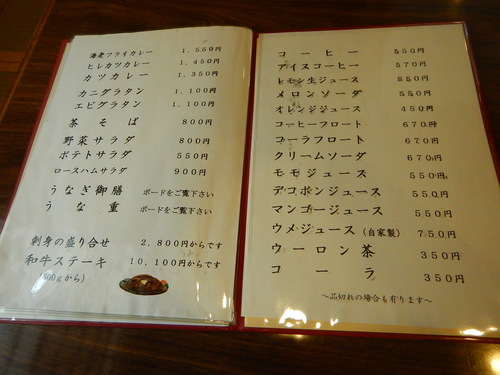 海老フライカレー 1,550円
ヒレカツカレー 1,450円
カツカレー 1,350円
カニグラタン 1,100円
エビグラタン 1,100円
茶そば 800円
野菜サラダ 800円
ポテトサラダ 550円
ロースハムサラダ 900円
うなぎ御膳 ボードをご覧下さい
うな重 ボードをご覧下さい
刺身の盛り合せ 2,800円からです
和牛ステーキ 10,100円からです
(500gから)
コーヒー 550円
アイスコーヒー 570円
レモン生ジュース 850円
メロンソーダ 550円
オレンジジュース 450円
コーヒーフロート 670円
コーラフロート 670円
クリームソーダ 670円
モモジュース 550円
デコポンジュース 550円
マンゴージュース 550円
ウメジュース(自家製) 750円
ウーロン茶 350円
コーラ 350円
〜品切れの場合も有ります〜